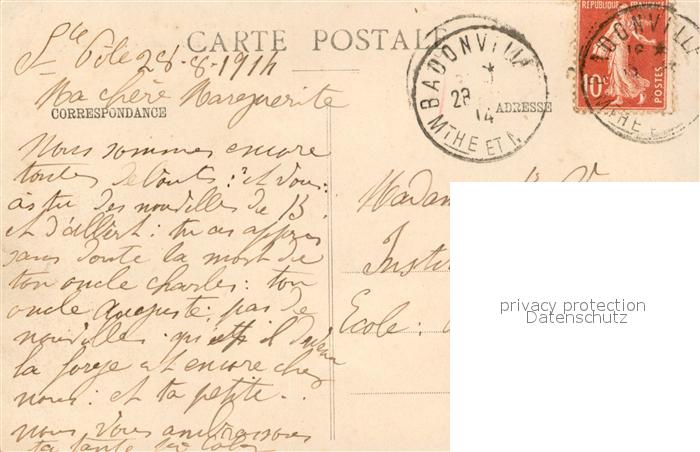 Ste Pôle 28-8-1914
CARTE POSTALE
Ma chère Marguerite
CORRESPONDANCE
Nous sommes encore
toutes debouts: et vous:
as tu des nouvelles de B.
et d'albert: tu as appris
sans doute la mort de
ton oncle charles: ton
oncle Auguste: pas de
nouvelles. il
la forge est encore chez
nous: et ta petite...
nous vous embrassons
ta tante
ADRESSE
Madame
Instit
Ecole:
BADONVILLER
28
14
MTHE ET M
REPUBLIQUE FRANÇAISE
10c
POSTES
BADONVILLE
MTHE E
privacy protection
Datenschutz